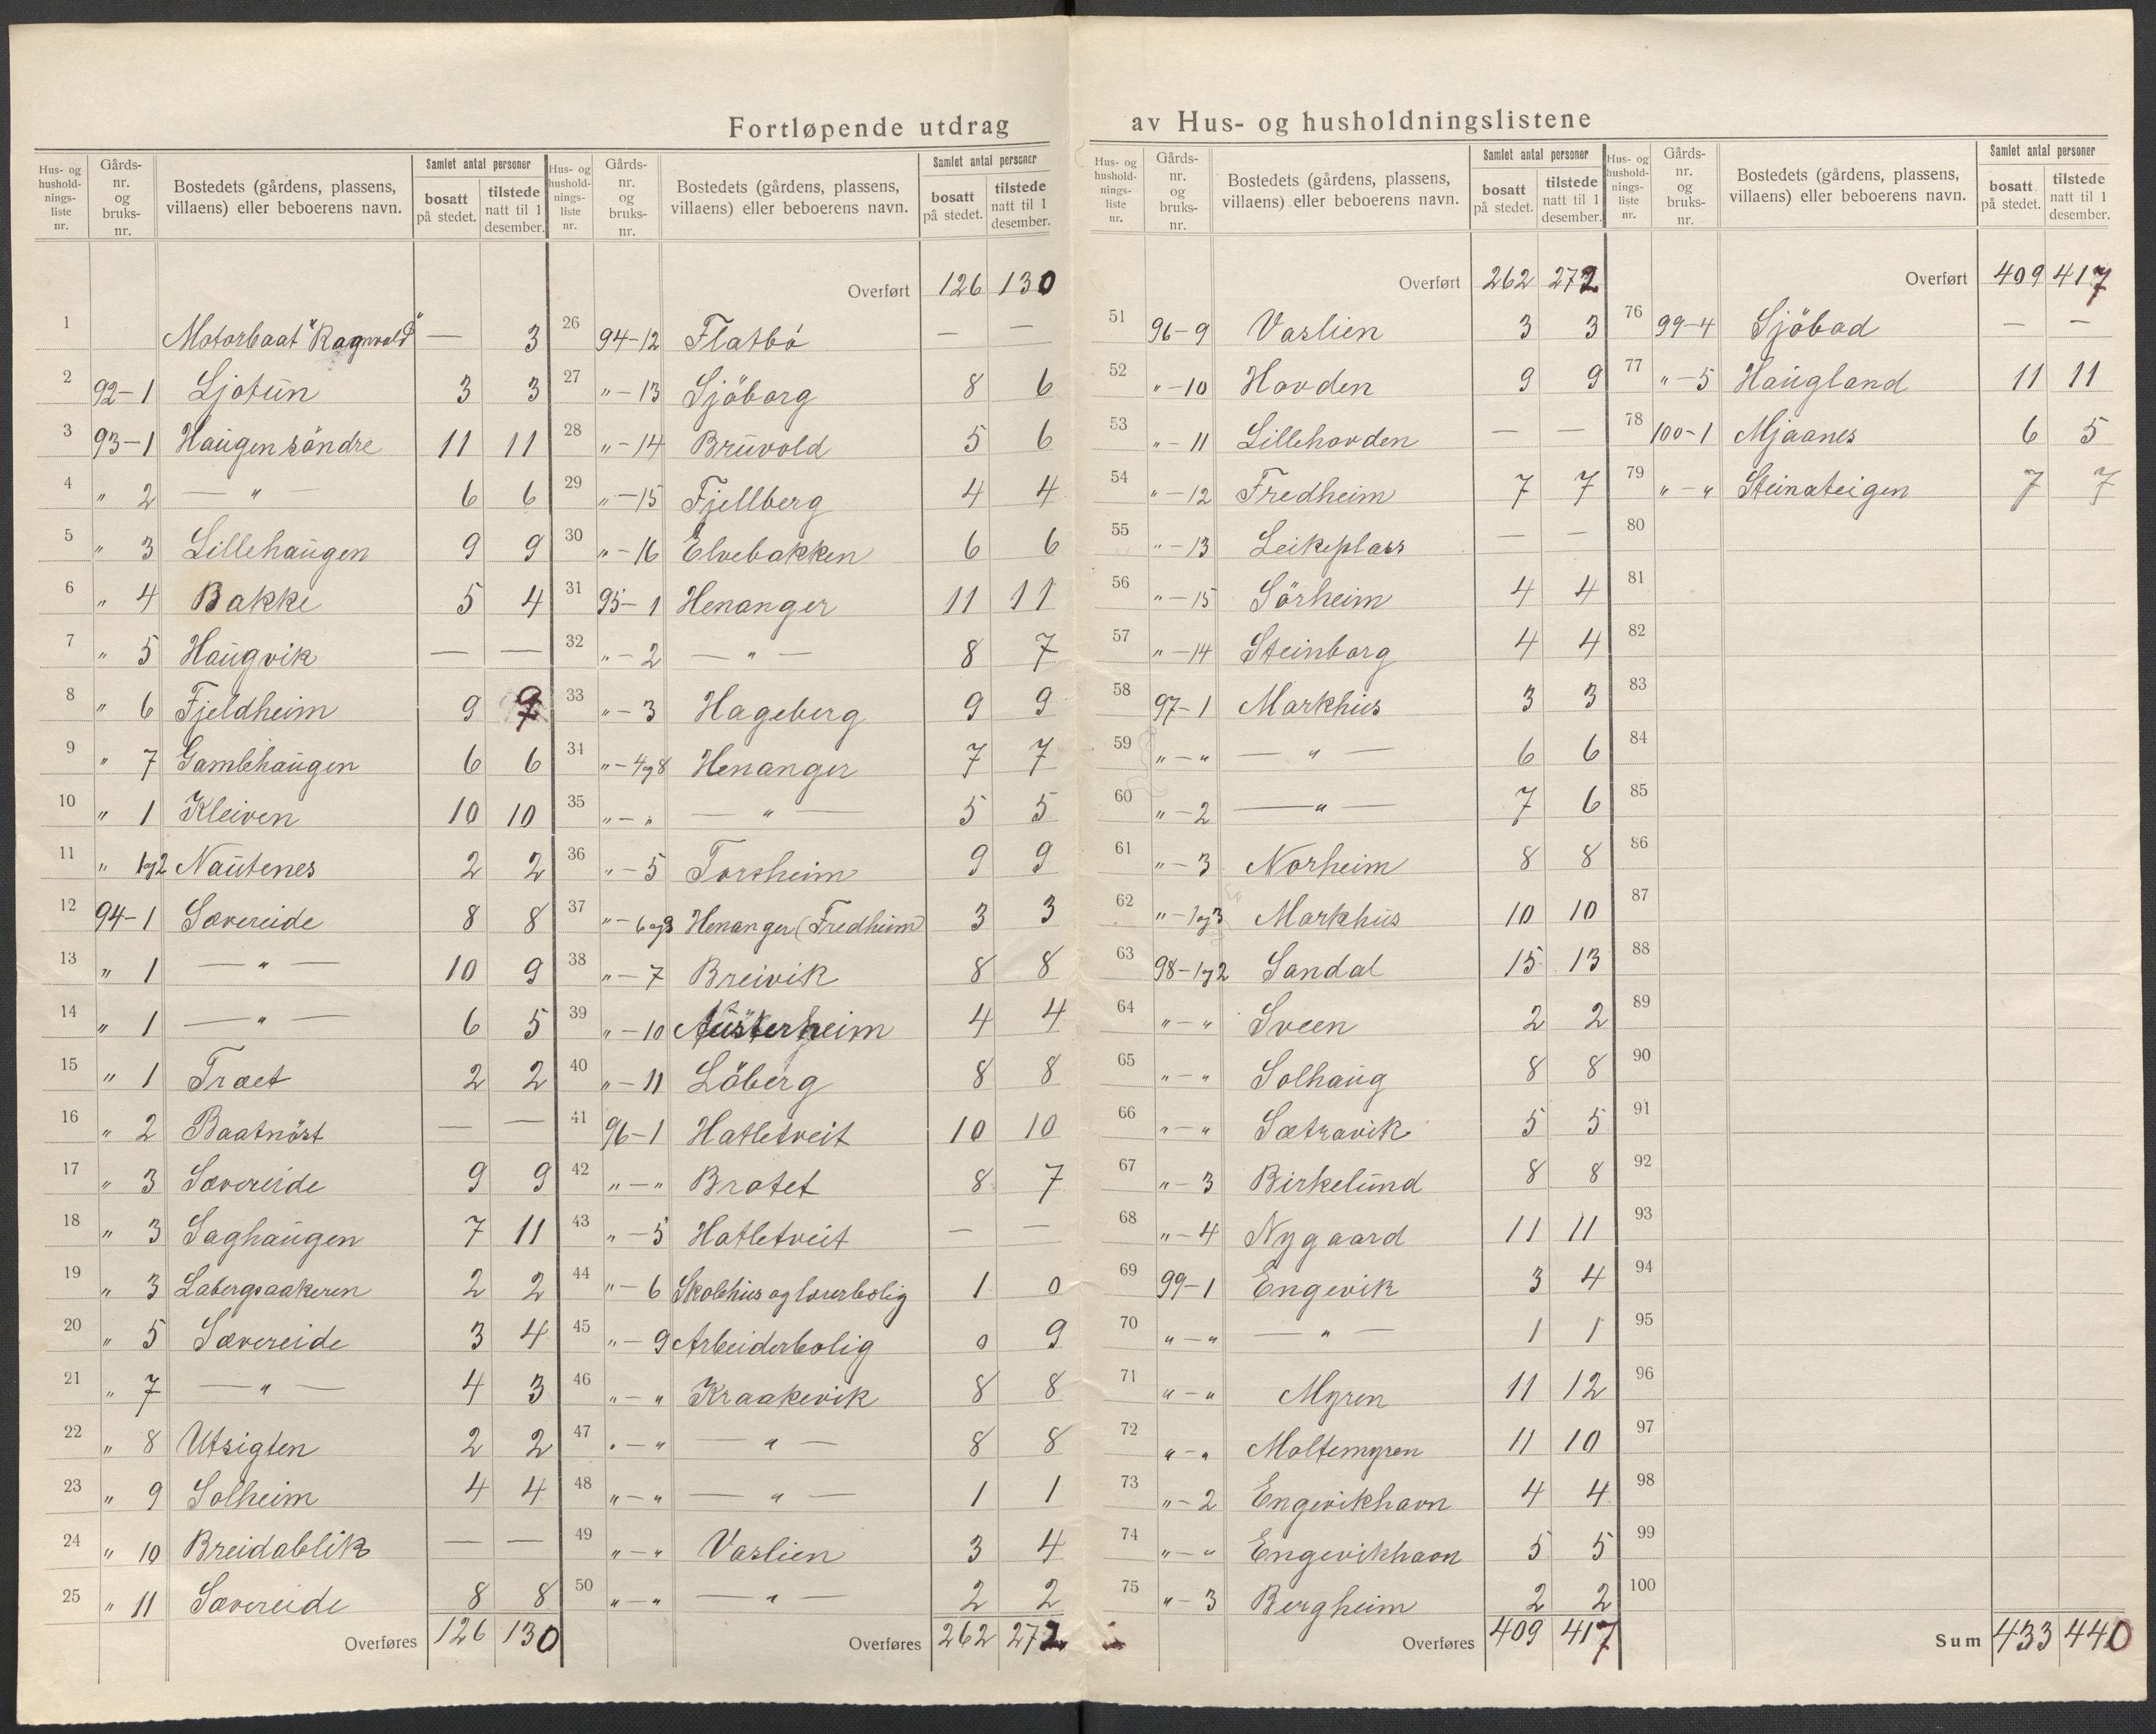 Fortløpende utdrag av Hus- og husholdningslistene
Hus- og husholdnings-liste nr. | Gårds-nr. og bruks-nr. | Bostedets (gårdens, plassens, villaens) eller beboerens navn. | Samlet antal personer bosatt på stedet. | tilstede natt til 1 desember.
1 Motorbaat "Ragnvald" — 3
2 92-1 Ljotun 3 3
3 93-1 Haugen söndre 11 11
4 " 2 — " — 6 6
5 " 3 Lillehaugen 9 9
6 " 4 Bakke 5 4
7 " 5 Haugvik — —
8 " 6 Fjeldheim 9 9
9 " 7 Gamlehaugen 6 6
10 " 1 Kleiven 10 10
11 " 1og2 Nautenes 2 2
12 94-1 Sævereide 8 8
13 " 1 — " — 10 9
14 " 1 — " — 6 5
15 " 1 Træet 2 2
16 " 2 Baatnöst — —
17 " 3 Sævereide 9 9
18 " 3 Saghaugen 7 11
19 " 3 Labergsaakeren 2 2
20 " 5 Sævereide 3 4
21 " 7 — " — 4 3
22 " 8 Utsigten 2 2
23 " 9 Solheim 4 4
24 " 10 Breidablik — —
25 " 11 Sævereide 8 8
Overføres 126 130
Hus- og husholdnings-liste nr. | Gårds-nr. og bruks-nr. | Bostedets (gårdens, plassens, villaens) eller beboerens navn. | Samlet antal personer bosatt på stedet. | tilstede natt til 1 desember.
Overført 126 130
26 94-12 Flatbö — —
27 " -13 Sjöborg 8 6
28 " -14 Bruvold 5 6
29 " -15 Fjellberg 4 4
30 " -16 Elvebakken 6 6
31 95-1 Henanger 11 11
32 " -2 — " — 8 7
33 " -3 Hageberg 9 9
34 " -4og8 Henanger 7 7
35 " - " — " — 5 5
36 " -5 Torsheim 9 9
37 " -6og9 Henanger (Fredheim) 3 3
38 " -7 Breivik 8 8
39 " -10 Austerheim 4 4
40 " -11 Löberg 8 8
41 96-1 Hatletveit 10 10
42 " - " Brotet 8 7
43 " -5 Hatletveit — —
44 " -6 Skolehus og lærerbolig 1 0
45 " -9 Arbeiderbolig 0 9
46 " - " Kraakevik 8 8
47 " - " — " — 8 8
48 " - " — " — 1 1
49 " - " Vaslien 3 4
50 " - " — " — 2 2
Overføres 262 272
Hus- og husholdnings-liste nr. | Gårds-nr. og bruks-nr. | Bostedets (gårdens, plassens, villaens) eller beboerens navn. | Samlet antal personer bosatt på stedet. | tilstede natt til 1 desember.
Overført 262 272
51 96-9 Vaslien 3 3
52 " -10 Hovden 9 9
53 " -11 Lillehovden — —
54 " -12 Fredheim 7 7
55 " -13 Leikeplass — —
56 " -15 Sörheim 4 4
57 " -14 Steinborg 4 4
58 97-1 Markhus 3 3
59 " - " — " — 6 6
60 " -2 — " — 7 6
61 " -3 Norheim 8 8
62 " -1og3 Markhus 10 10
63 98-1og2 Sandal 15 13
64 " - " Sveen 2 2
65 " - " Solhaug 8 8
66 " - " Sætravik 5 5
67 " -3 Birkelund 8 8
68 " -4 Nygaard 11 11
69 99-1 Engevik 3 4
70 " - " — " — 1 1
71 " - " Myren 11 12
72 " - " Moltemyren 11 10
73 " -2 Engevikhavn 4 4
74 " - " Engevikhavn 5 5
75 " -3 Bergheim 2 2
Overføres 409 417
Hus- og husholdnings-liste nr. | Gårds-nr. og bruks-nr. | Bostedets (gårdens, plassens, villaens) eller beboerens navn. | Samlet antal personer bosatt på stedet. | tilstede natt til 1 desember.
Overført 409 417
76 99-4 Sjöbad — —
77 " -5 Haugland 11 11
78 100-1 Mjaanes 6 5
79 " - " Steinateigen 7 7
80
81
82
83
84
85
86
87
88
89
90
91
92
93
94
95
96
97
98
99
100
Sum 433 440